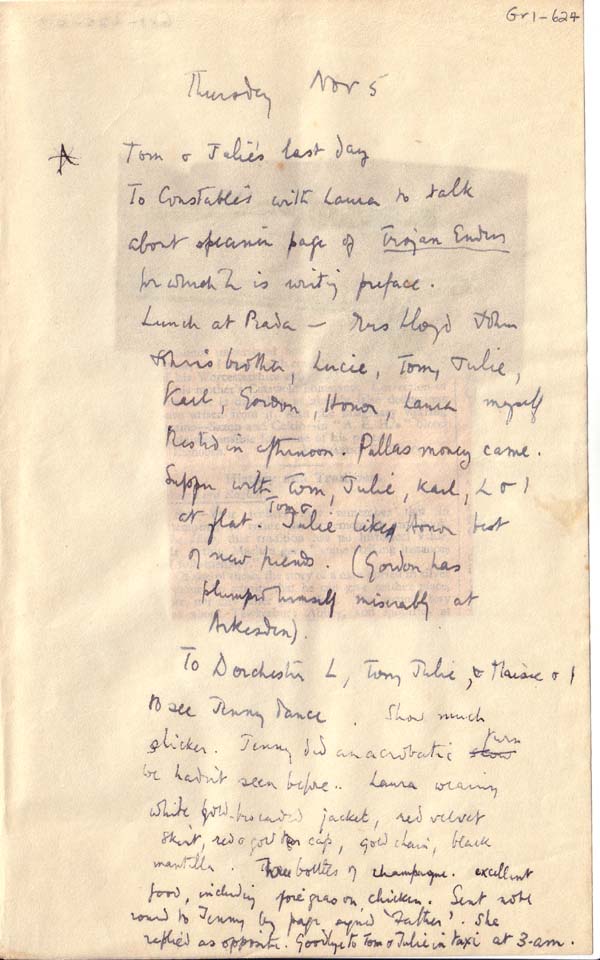 Gr1-624
Thursday Nov 5
Tom & Julie's last day
To Constable's with Laura to talk
about specimen page of Trojan Ending
for which L is writing preface.
Lunch at Prada – Mrs Lloyd John
John's brother, Lucie, Tom, Julie,
Karl, Gordon, Honor, Laura myself
Rested in afternoon. Pallas money came.
Supper with Tom, Julie, Karl, L & I
at flat. Tom & Julie liked Honor best
of new friends. (Gordon has
plumped himself miserably at
Arkesden).
To Dorchester L, Tom, Julie, & Maisie & I
to see Jenny dance. Show much
slicker. Jenny did an acrobatic show turn
we hadn't seen before. Laura wearing
white gold-brocaded jacket, red velvet
skirt, red & gold cap, gold chain, black
mantilla. Three bottles of champagne. excellent
food, including foie gras on chicken. Sent note
round to Jenny by page signed 'Father'. She
replied as opposite. Goodbye to Tom & Julie in taxi at 3-am.